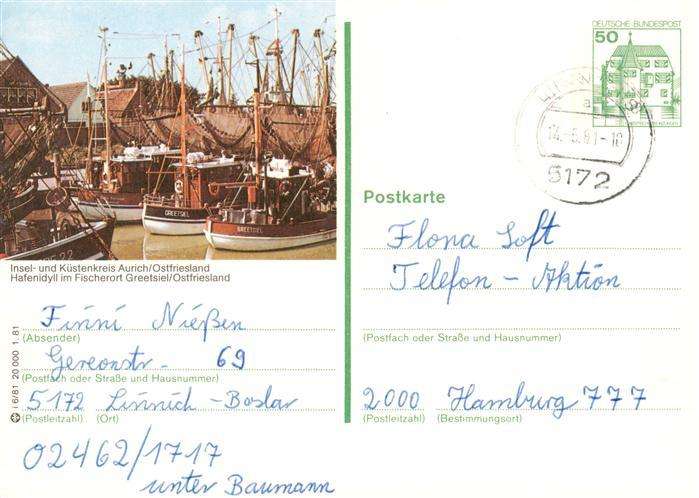 DEUTSCHE BUNDESPOST
50
14.-5.81-18
5172
GREETSIEL
GREETSIEL
Insel- und Küstenkreis Aurich/Ostfriesland
Hafenidyll im Fischerort Greetsiel/Ostfriesland
Postkarte
Flora Soft
Telefon - Aktion
(Postfach oder Straße und Hausnummer)
2000 Hamburg 777
(Postleitzahl) (Bestimmungsort)
Finni Nießen
(Absender)
Gereonstr. 69
(Postfach oder Straße und Hausnummer)
5172 Linnich-Boslar
(Postleitzahl) (Ort)
02462/1717
unter Baumann
i 6/81 20 000 1.81